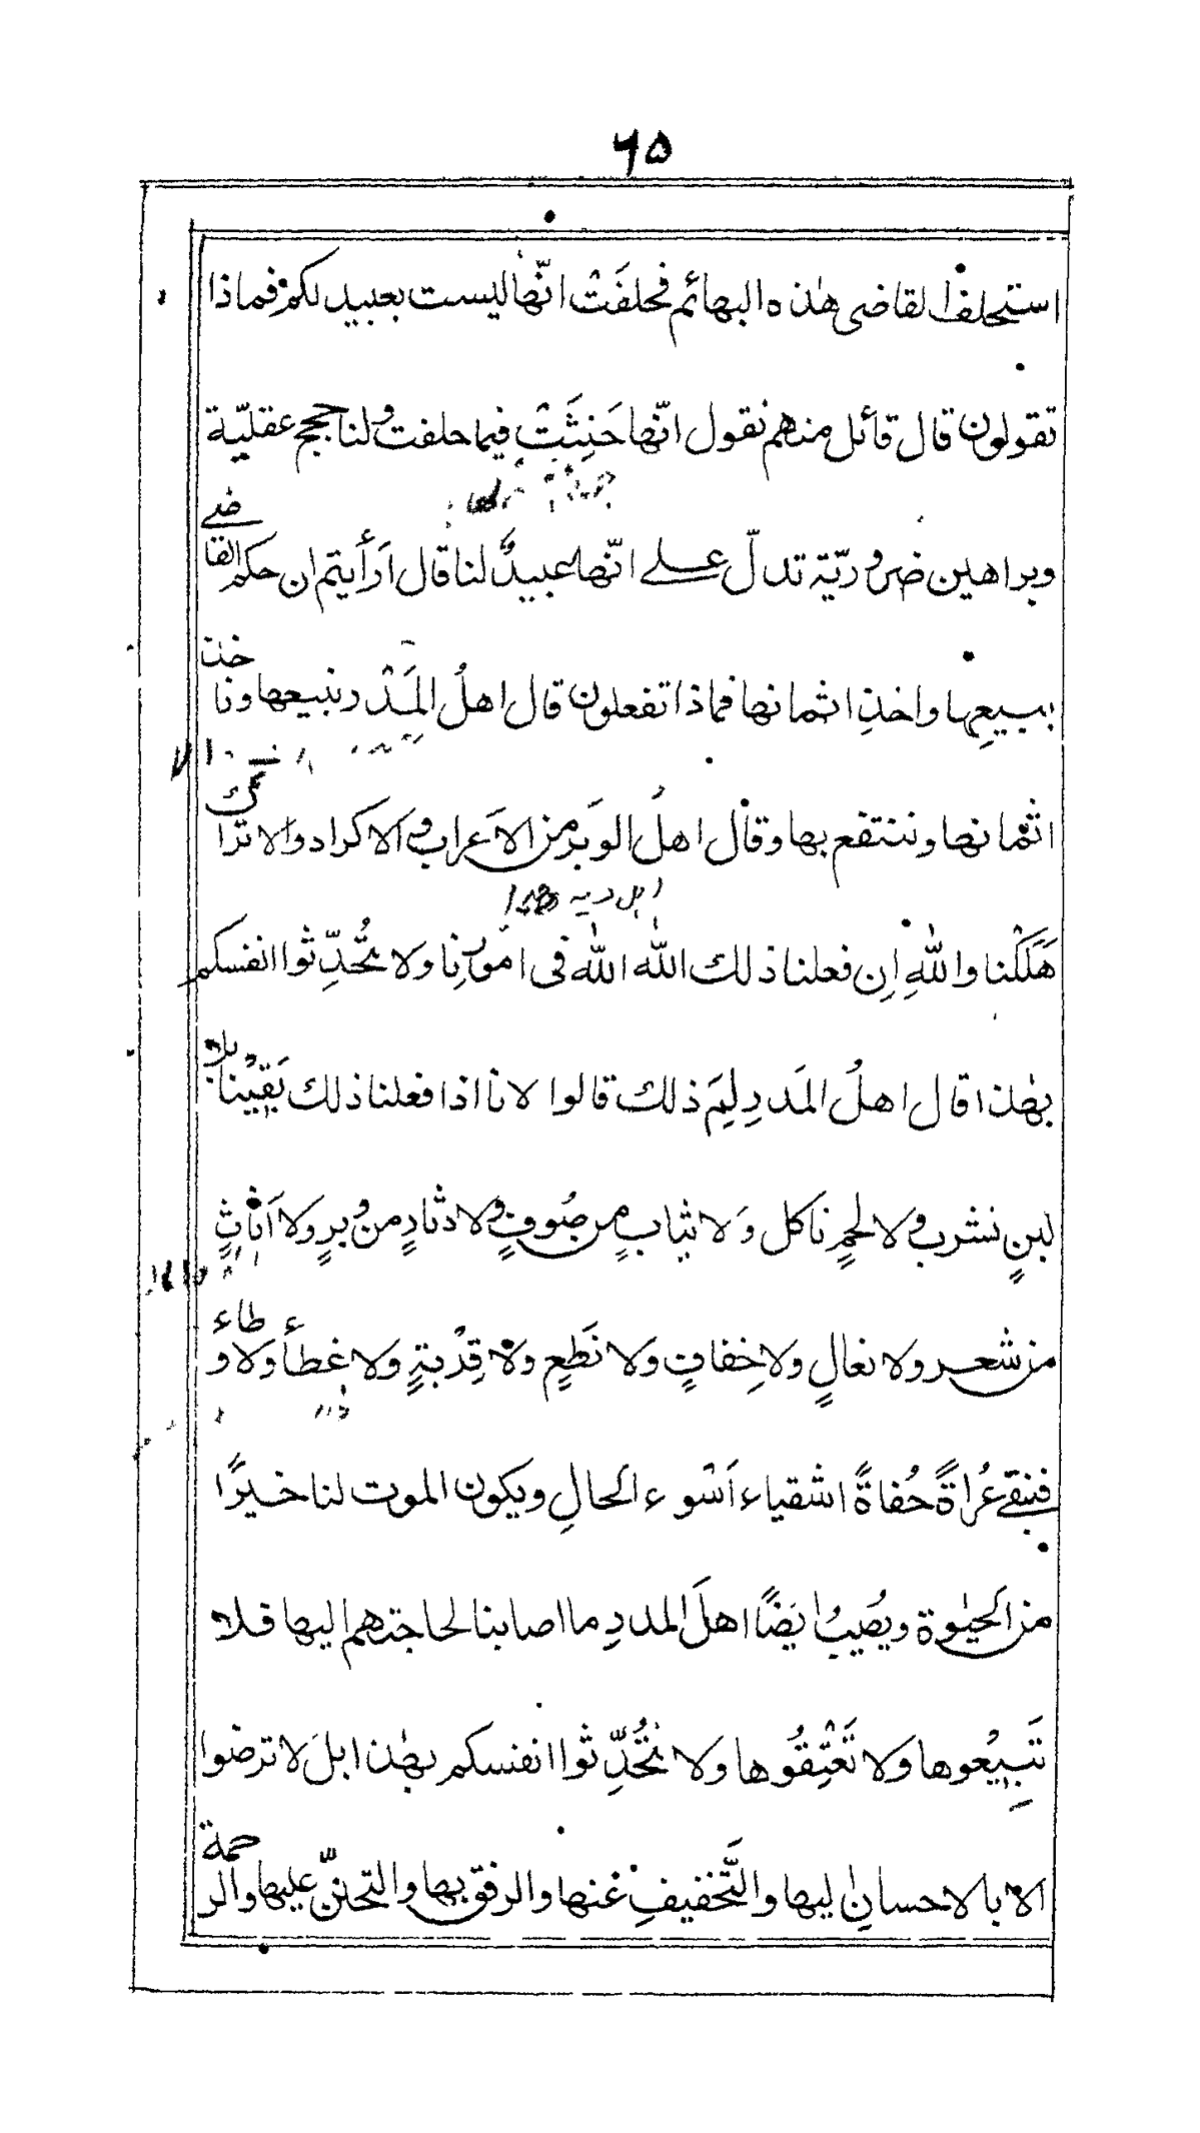 ٦٥
استحلف القاضى هٰذه البهائم فحلفَتْ انّها ليست بعبيد لكم فماذا
تقولون قال قائل منهم نقول انّها حَنِثَتْ فيما حلفت ولنا حجج عقليّة
وبراهين ضروريّة تدلّ على انّها عبيدٌ لنا قال اَرأيتم ان حكم القاضى
ببيعِها واخذِ اثمانها فماذا تفعلون قال اهلُ المَدْر نبيعها وناخذ
اثمانها وننتفع بها وقال اهلُ الوَبَر من الاَعراب والاكراد والاتراك
هَلَكْنا واللهِ اِن فعلنا ذلك اللهَ اللهَ فى امورنِا ولا تُحَدِّثوا انفسكم
بهٰذا قال اهلُ المَدرِ لِمَ ذلك قالوا لانا اذا فعلنا ذلك بَقِيْنا بلا
لبنٍ نشرب ولا لحمٍ ناكل وَلا ثيابٍ من صُوفٍ ولا دثارٍ من وبرٍ ولا اَثاثٍ
من شعر ولا نعالٍ ولا خِفافٍ ولا نَطعٍ ولا قِرْبةٍ ولا غطاء ولا وطاء
فنبقى عُراةً حُفاةً اشقياء اَسْوء الحالِ ويكون الموت لنا خيرًا
من الحيٰوة ويُصيبُ ايَضًا اهلَ المدرِ ما اصابنا لحاجتهم اليها فلا
تَبِيْعُوها ولا تَعْتِقُوها ولا تُحَدِّثوا انفسكم بهٰذا بل لا ترضوا
الا بالاحسانِ اليها والتَّخفيفِ عنها والرفق بها والتحنّن عليها والرحمة